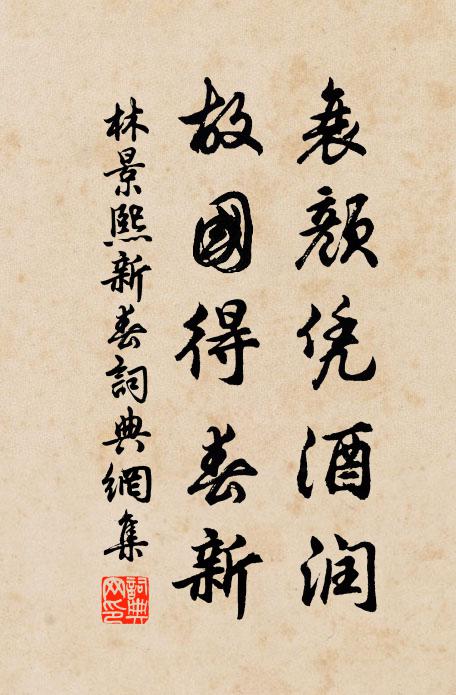 衰颜凭酒润
故國得春新
林景熙新春詞典網集
詞典网印